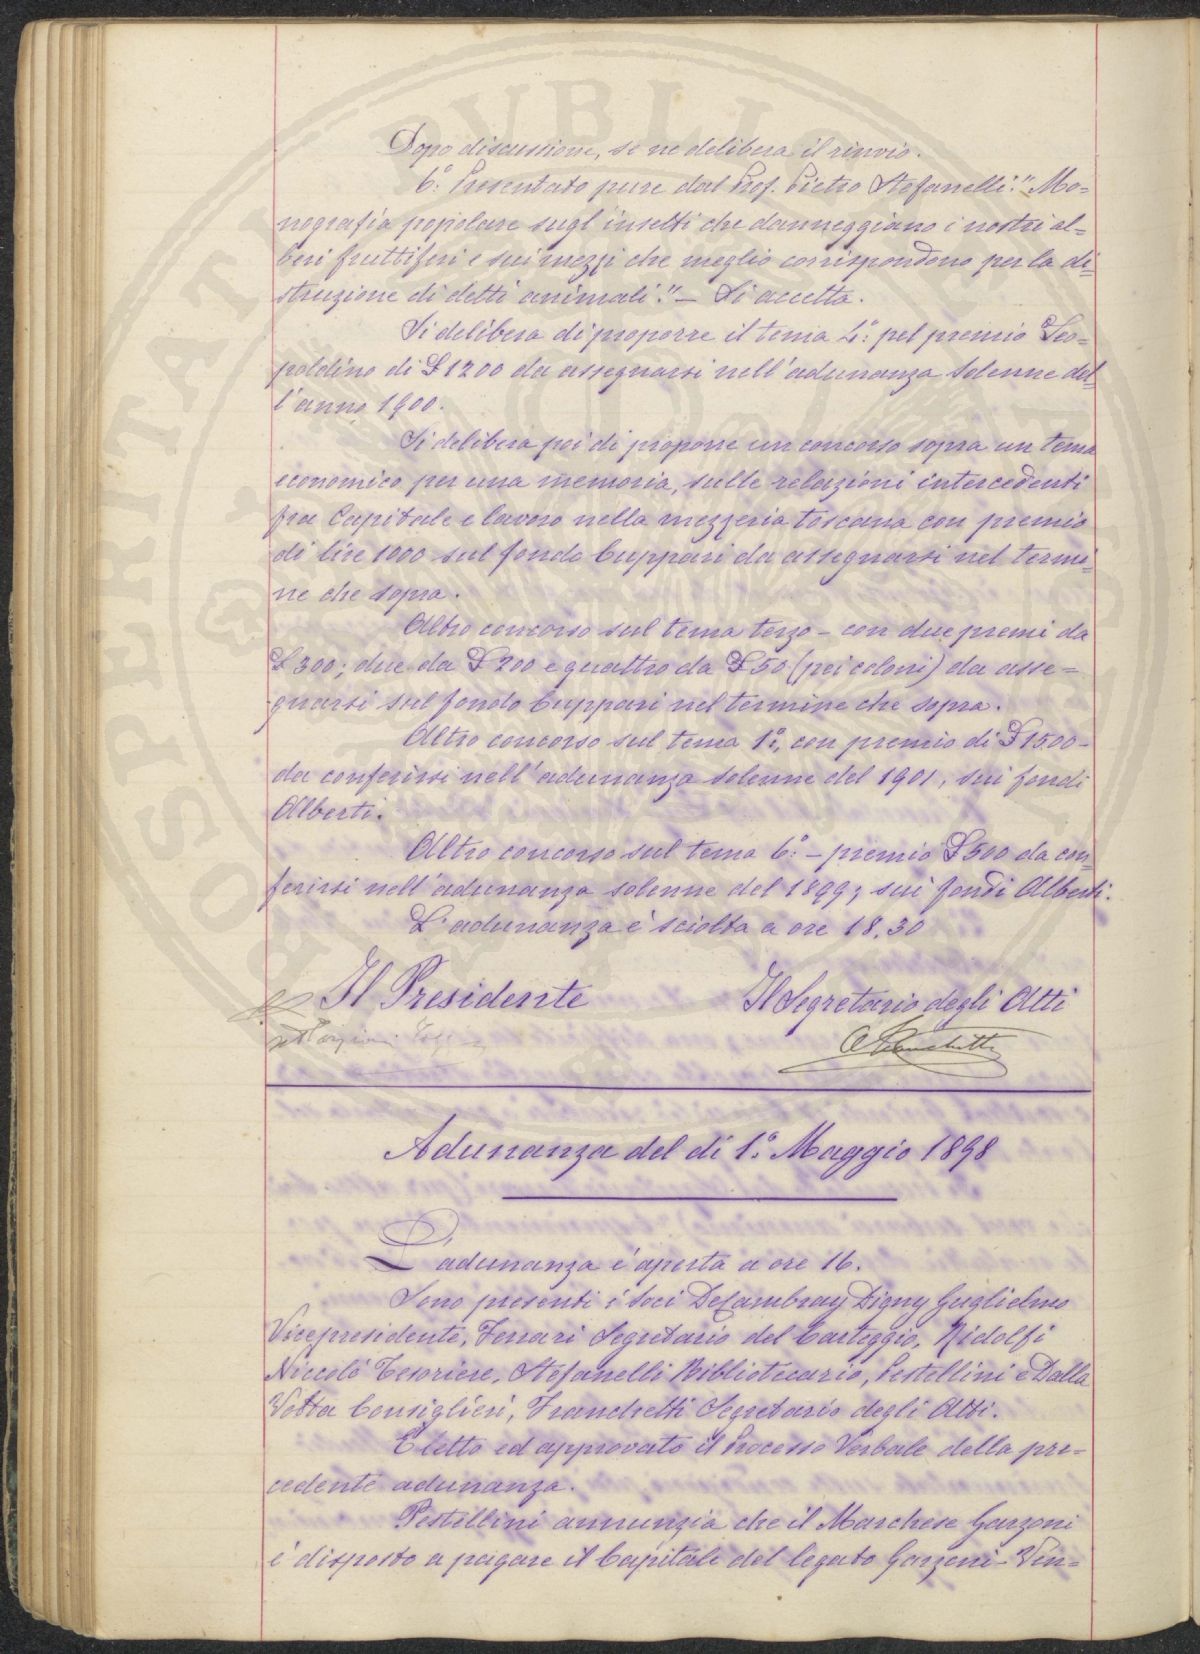 Dopo discussione, se ne delibera il rinvio.
6.º Presentato pure dal Prof. Pietro Stefanelli: "Mo=
nografia popolare sugl'insetti che danneggiano i nostri al=
beri fruttiferi e sui mezzi che meglio corrispondono per la di=
struzione di detti animali". — Si accetta.
Si delibera di proporre il tema 4.º pel premio Leo=
poldino di £ 1200 da assegnarsi nell'adunanza solenne del=
l'anno 1900.
Si delibera poi di proporre un concorso sopra un tema
economico per una memoria, sulle relazioni intercedenti
fra Capitale e lavoro nella mezzeria toscana con premio
di lire 1000 sul fondo Cuppari da assegnarsi nel termi=
ne che sopra.
Altro concorso sul tema terzo — con due premi da
£ 300; due da £ 200 e quattro da £ 50 (pei coloni) da asse=
gnarsi sul fondo Cuppari nel termine che sopra.
Altro concorso sul tema 1.º, con premio di £ 1500 —
da conferirsi nell'adunanza solenne del 1901, sui fondi
Alberti.
Altro concorso sul tema 6.º — premio £ 500 da con=
ferirsi nell'adunanza solenne del 1899; sui fondi Alberti.
L'adunanza è sciolta a ore 18.30
Il Presidente Il Segretario degli Atti
Franchetti
Adunanza del dì 1.º Maggio 1898
L'adunanza è aperta a ore 16.
Sono presenti i Soci DeCambray Digny Guglielmo
Vicepresidente, Ferrari Segretario del Carteggio, Ridolfi
Niccolò Tesoriere, Stefanelli Bibliotecario, Pestellini e Dalla
Volta Consiglieri, Franchetti Segretario degli Atti.
È letto ed approvato il Processo Verbale della pre=
cedente adunanza.
Pestellini annunzia che il Marchese Garzoni
è disposto a pagare il Capitale del legato Garzoni-Ven=
SPERITATI PVBLICAE